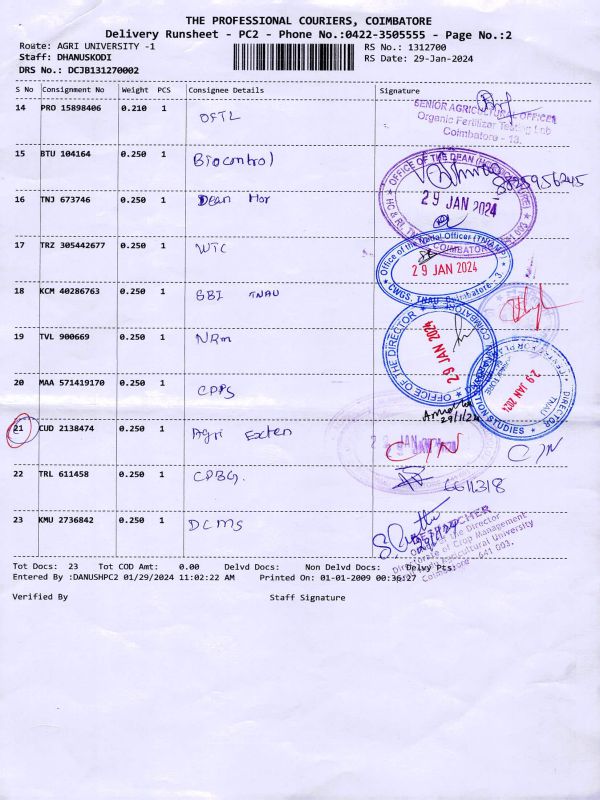 THE PROFESSIONAL COURIERS, COIMBATORE
Delivery Runsheet - PC2 - Phone No.:0422-3505555 - Page No.:2
Route: AGRI UNIVERSITY -1 RS No.: 1312700
Staff: DHANUSKODI RS Date: 29-Jan-2024
DRS No.: DCJB131270002
S No Consignment No Weight PCS Consignee Details Signature
14 PRO 15898406 0.210 1 OFTL
SENIOR AGRICULTURAL OFFICER
Organic Fertilizer Testing Lab
Coimbatore - 13.
15 BTU 104164 0.250 1 Biocontrol
OFFICE OF THE DEAN
29 JAN 2024
COIMBATORE
16 TNJ 673746 0.250 1 Dean Hor
17 TRZ 305442677 0.250 1 WTC
Office of the Nodal Officer (TNIAMP)
29 JAN 2024
CWGS, TNAU, Coimbatore - 3.
18 KCM 40286763 0.250 1 SBI TNAU
19 TVL 900669 0.250 1 NRM
OFFICE OF THE DIRECTOR
29 JAN 2024
20 MAA 571419170 0.250 1 CPPS
DIRECTOR
29 JAN 2024
TNAU
STUDIES
29/1/24
21 CUD 2138474 0.250 1 Agri Exten
22 TRL 611458 0.250 1 CPBG.
6611318
23 KMU 2736842 0.250 1 DCMS
the Director
Directorate of Crop Management
Agricultural University
Coimbatore - 641 003.
Tot Docs: 23 Tot COD Amt: 0.00 Delvd Docs: Non Delvd Docs: Delvy Pts:
Entered By :DANUSHPC2 01/29/2024 11:02:22 AM Printed On: 01-01-2009 00:36:27
Verified By Staff Signature